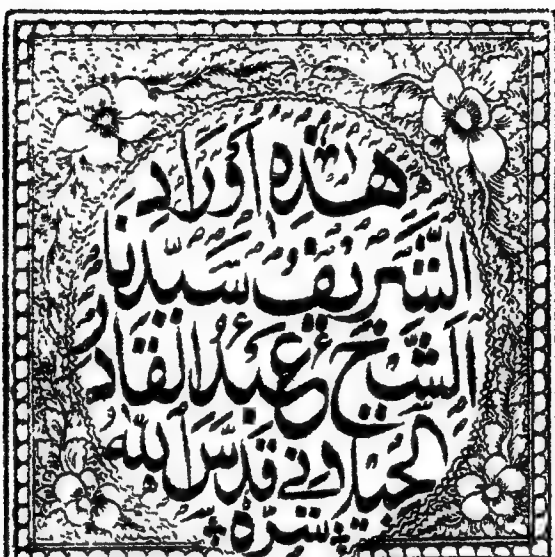 هذه اوراد
الشريف سيدنا
الشيخ عبد القادر
الجيلاني قدس الله
سره